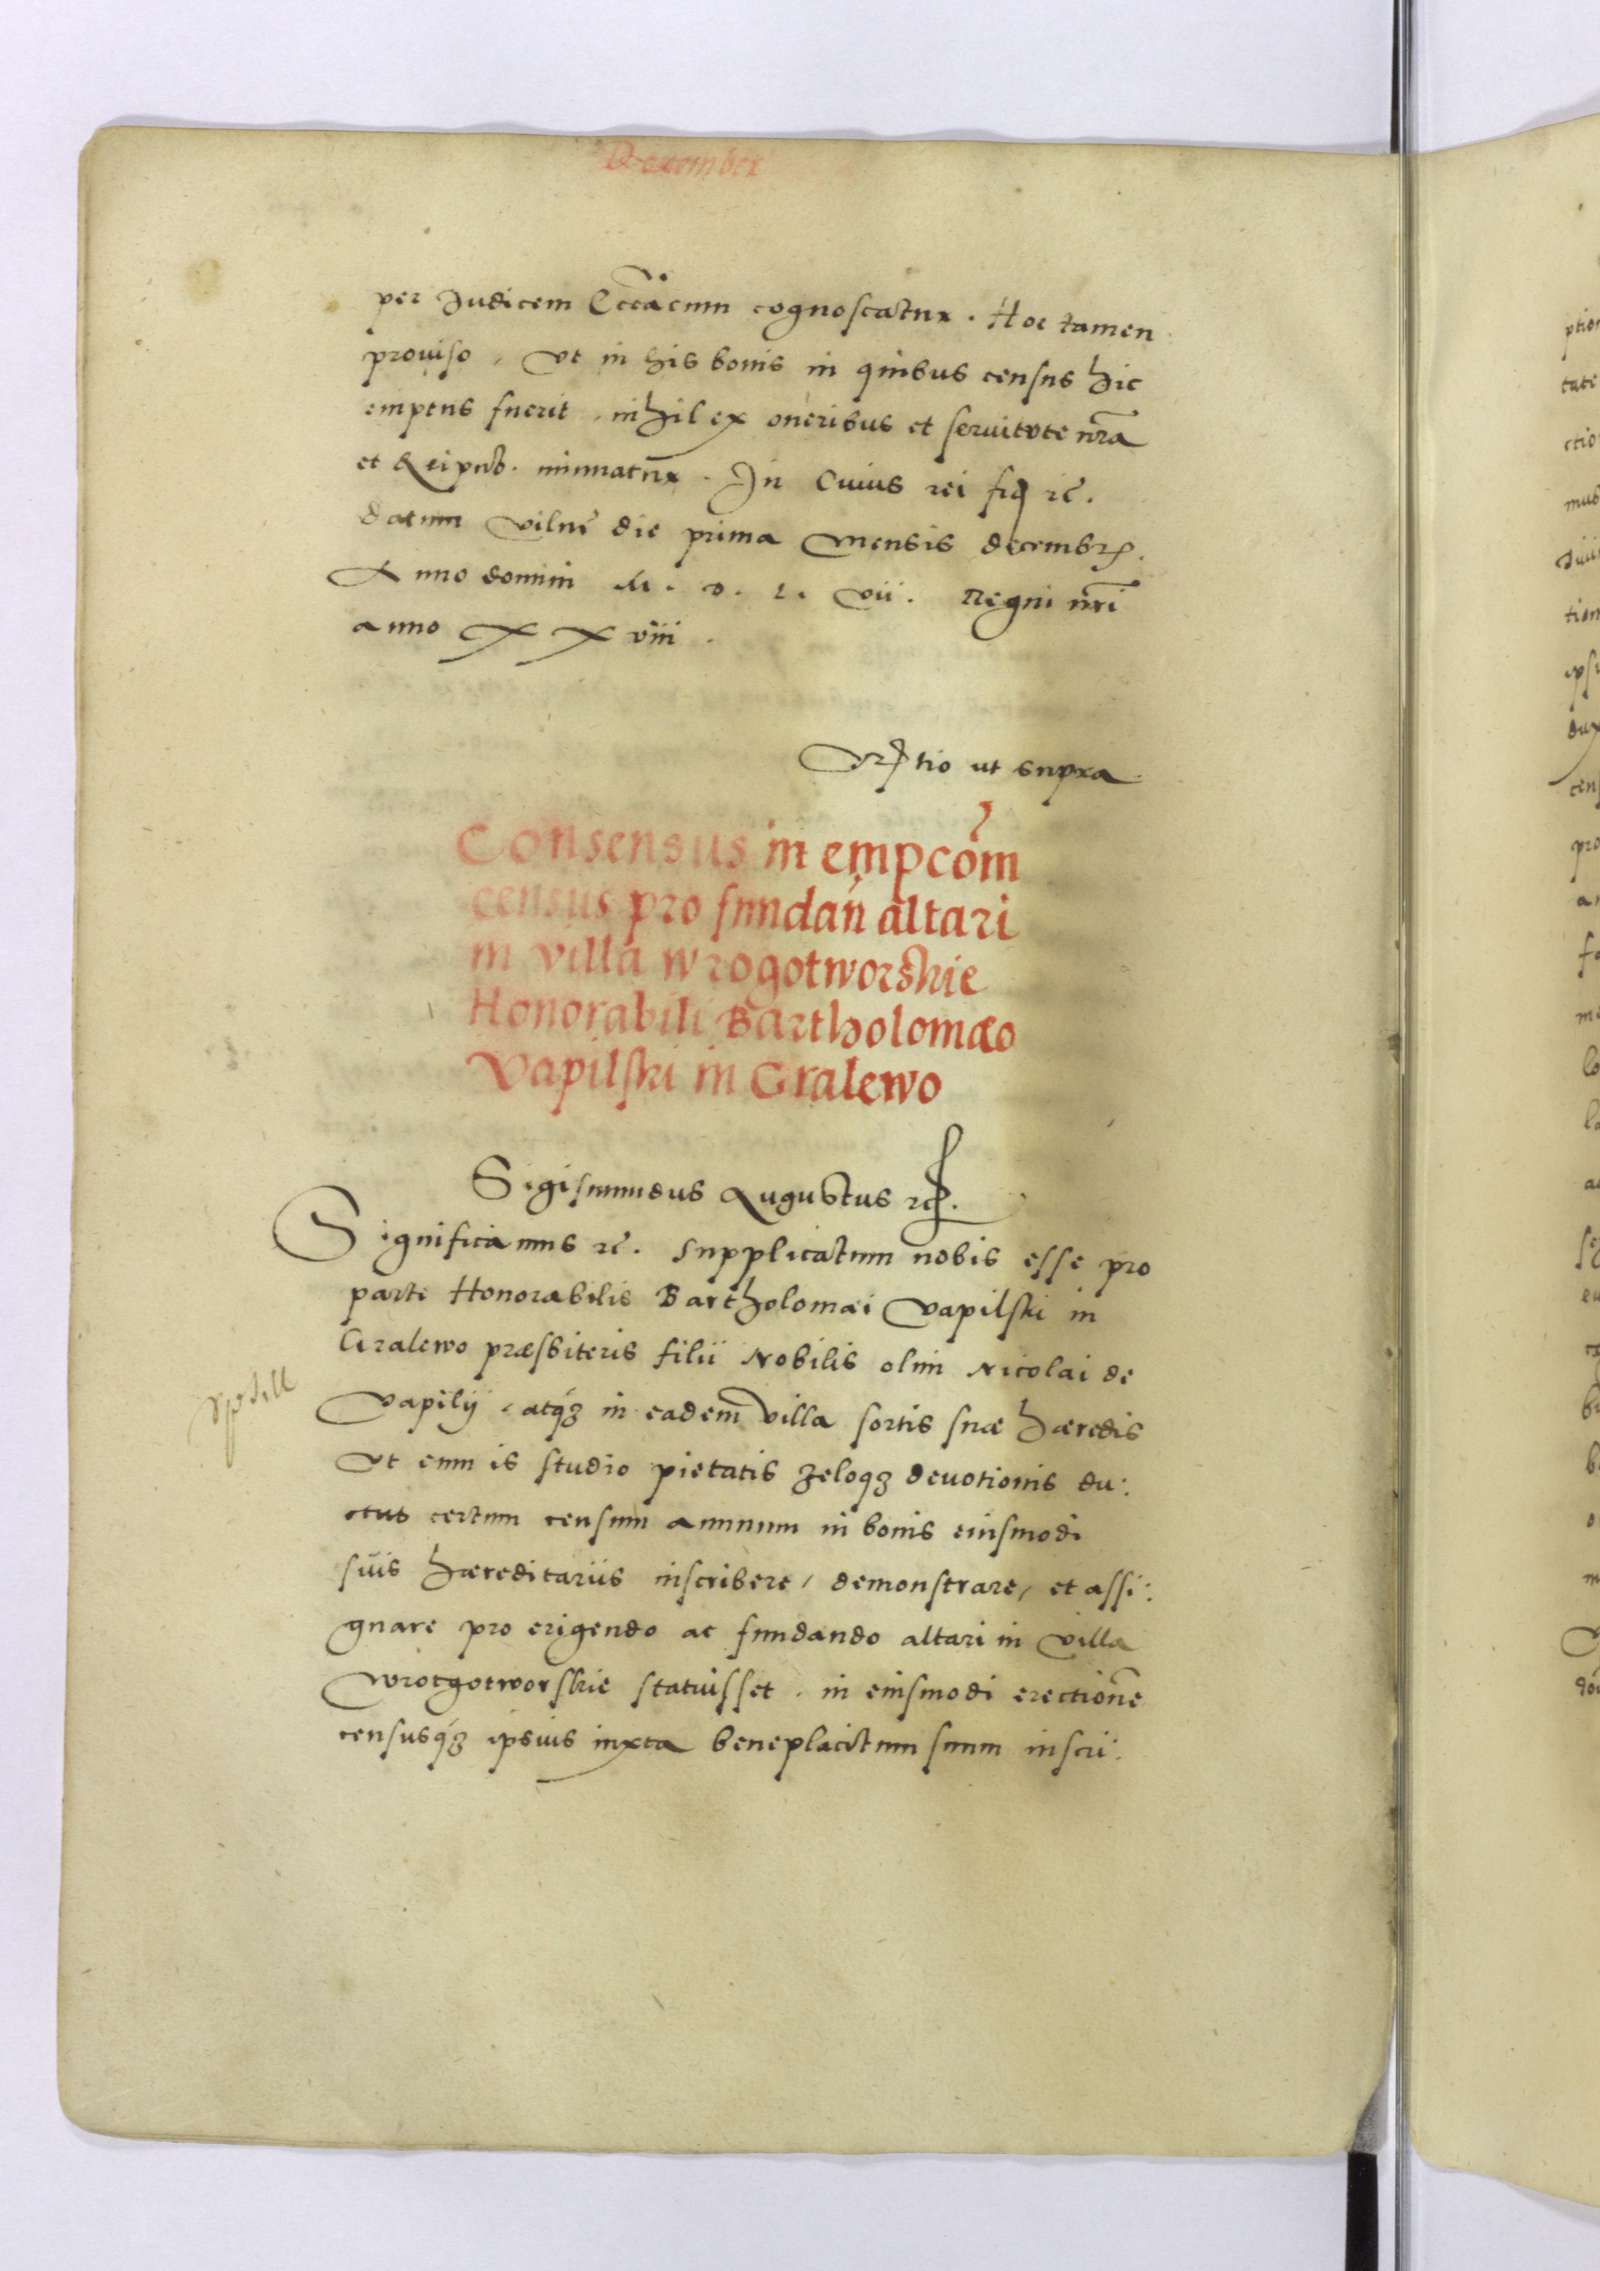 December
per Judicem Eccl̃iacum cognoscatur. Hoc tamen
prouiso, Vt in his bonis in quibus census hic
emptus fuerit, nihil ex oneribus et seruitute nr̃a
et Reipub. minuatur. In Cuius rei fiď rc̃.
datum Vilnẽ die prima Mensis decembr̃.
Anno domini M. D. L. Vii. Regni nr̃i
anno XXviii.
ut supra
Consensus in empcõm
census pro fundań altari
in villa wrogotworskie
Honorabili Bartholomæo
Vapilski in Gralewo
Sigismundus Augustus rc.
Significamus rc̃. Supplicatum nobis esse pro
parte Honorabilis Bartholomæi Vapilski in
Gralewo præsbiteris filii Nobilis olim Nicolai de
Vapily, atq́ʒ in eadem villa sortis suæ hæredis
Vt cum is studio pietatis zeloqʒ deuotionis du:
ctus certum censum annuum in bonis eiusmodi
suis hæreditariis inscribere, demonstrare, et assi:
gnare pro erigendo ac fundando altari in villa
Wrotgotworskie statuisset, in eiusmodi erectionẽ
censusq́ʒ ipsius iuxta beneplacitum suum inscri: